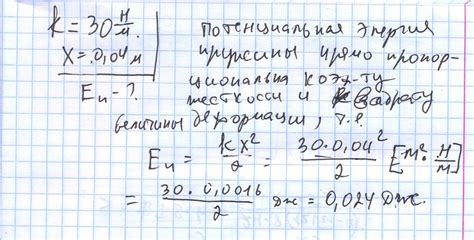 k = 30 Н/м
x = 0,04 м
Eп - ?
Потенциальная энергия
пружины прямо пропор-
циональна коэф-ту
жесткости и квадрату
величины деформации, т.е.
Eп = kx²/2 = 30·0,04²/2 [м²·Н/м]
= 30·0,0016/2 Дж = 0,024 Дж.